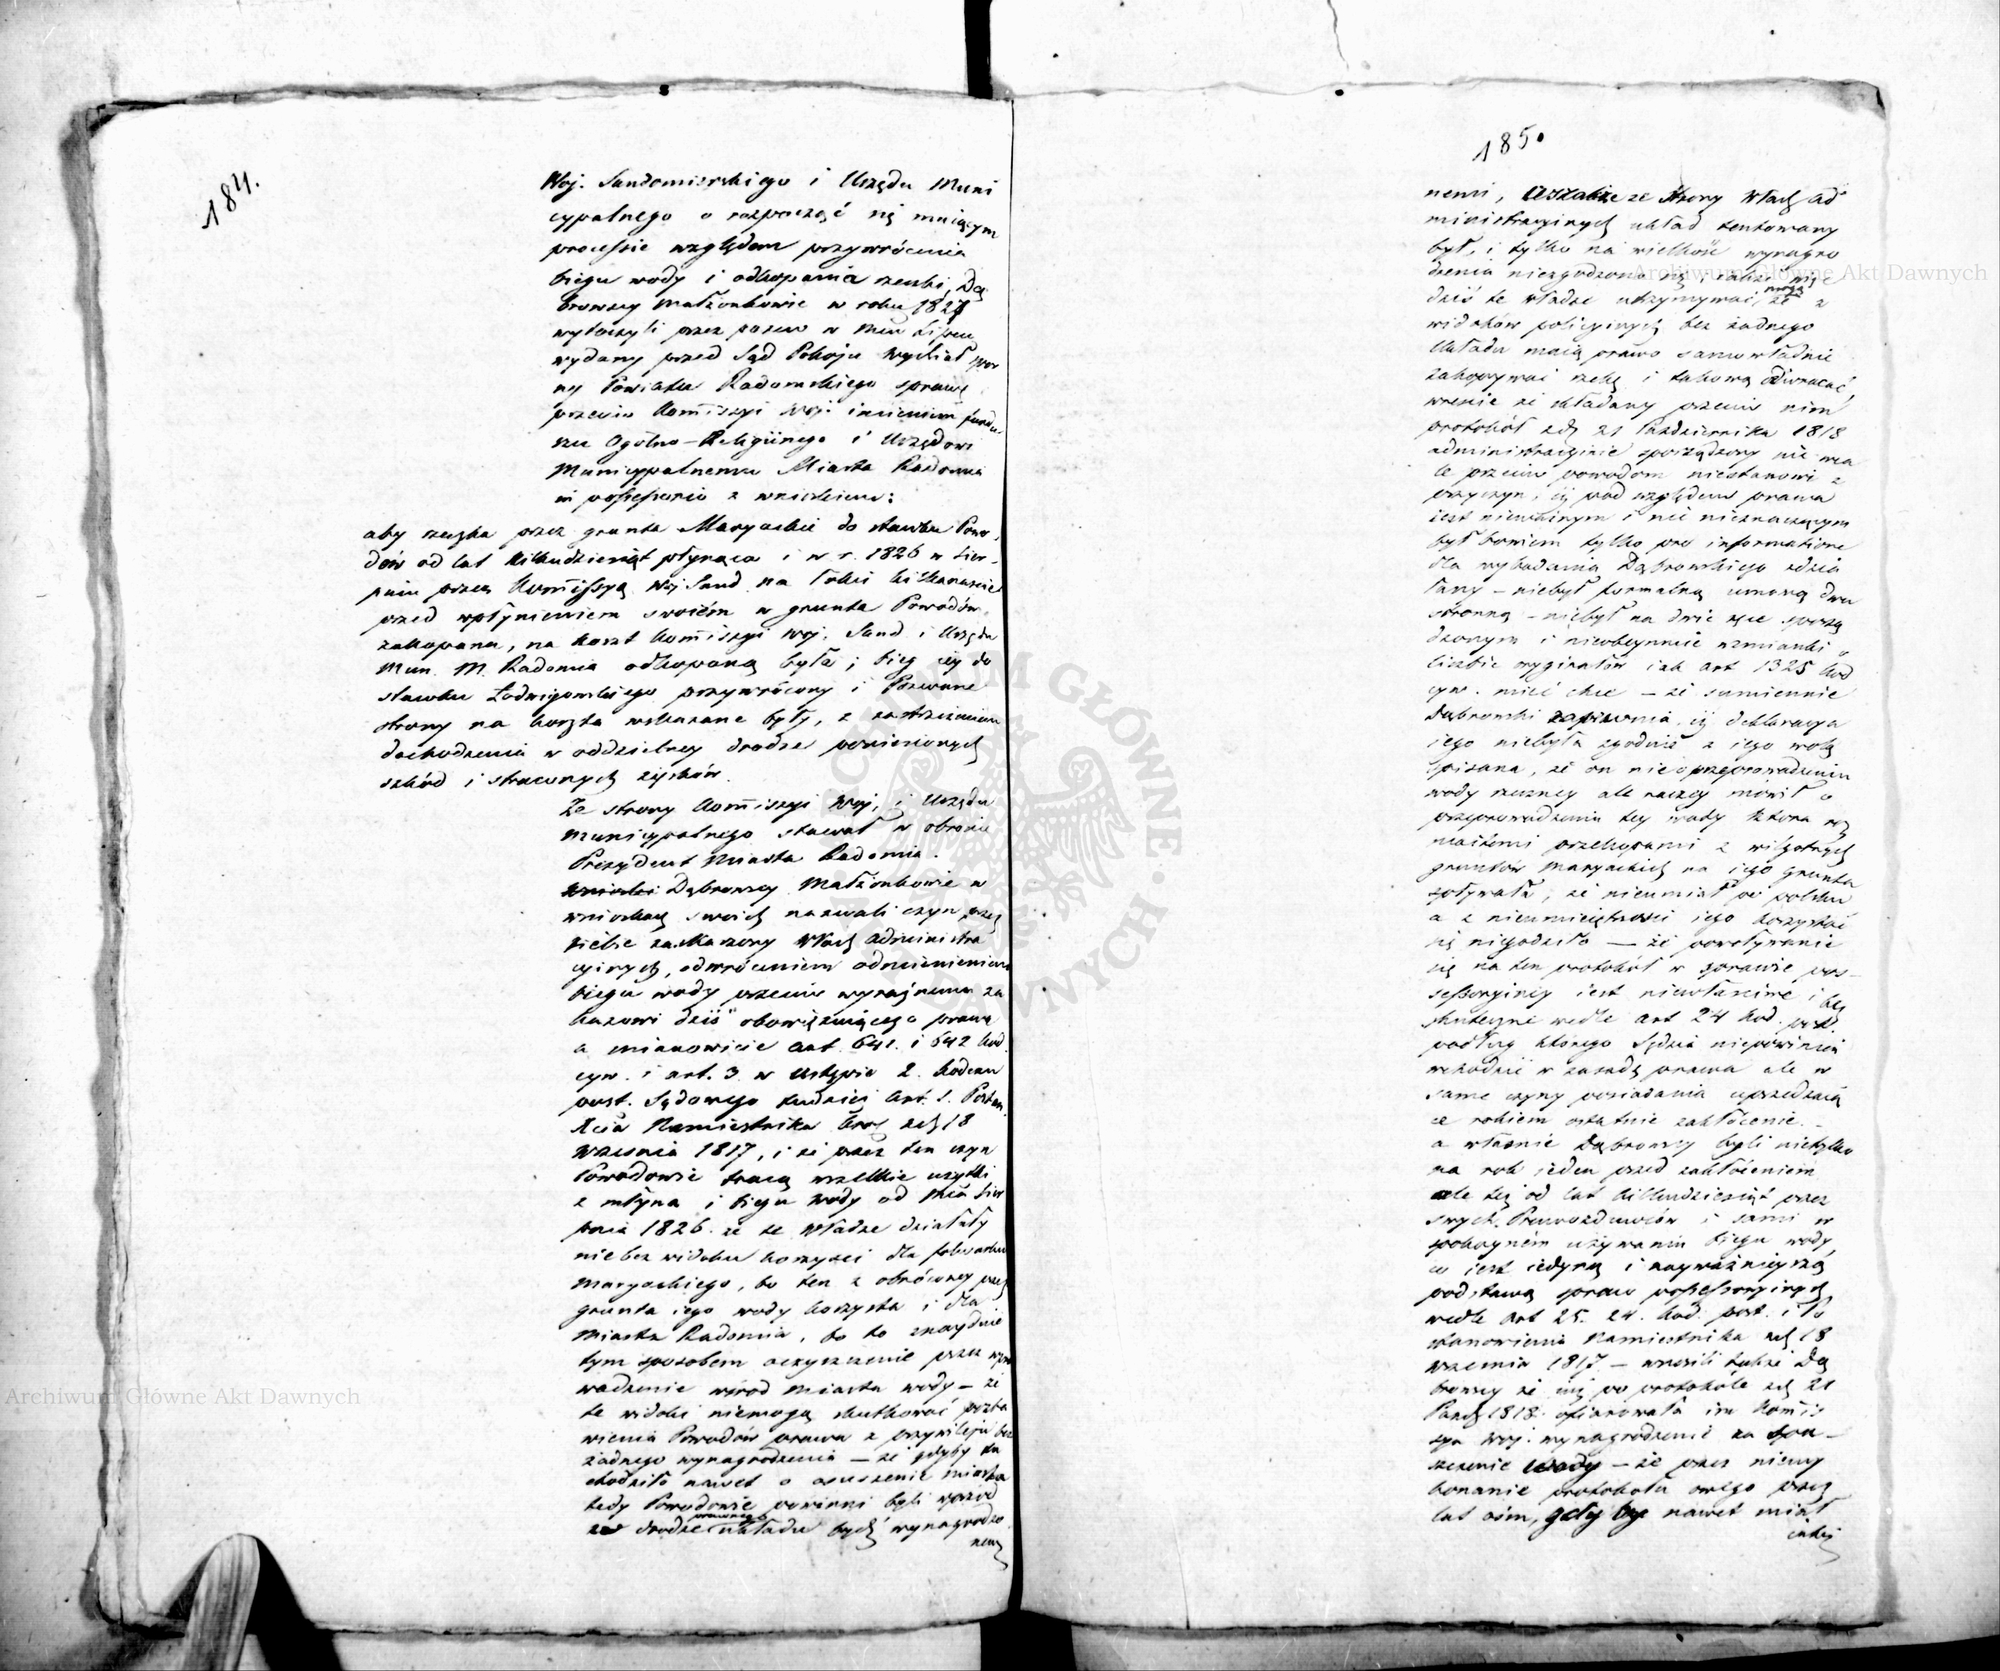 184.
Woj. Sandomierskiego i Urzędu Muni
cypalnego o rozpocząć się maiącym
processie względem przywrócenia
biegu wody i odkopania rzeczki, Dą
browscy Małżonkowie w roku 1827
wytoczyli przez pozew w Mcu Lipcu
wydany przed Sąd Pokoju Wydział spor
ny Powiatu Radomskiego sprawę
przeciw Kommissyi Woj. imieniem fundu
szu Ogólno-Religijnego i Urzędowi
Municypalnemu Miasta Radomia
in possessorio z wnioskiem:
aby rzeczka przez grunta Maryackie do stawku Powo
dów od lat kilkudziesiąt płynąca i w r. 1826 w Sier-
pniu przez Kommissyą Woj Sand. na łokci kilkanaście
przed wpłynieniem swoiém w grunta Powodów
zakopana, na koszt Kommissyi Woj. Sand i Urzędu
Mun. M. Radomia odkopaną była; bieg iey do
stawku przywrócony i Pozwane
strony na koszta wskazane były, z zastrzeżeniem
dochodzenia w oddzielney drodze poniesionych
szkód i straconych zysków.
Ze strony Kommissyi Woj. i Urzędu
Municypalnego stawał w obronie
Prezydent Miasta Radomia.
Dąbrowscy Małżonkowie w
wnioskach swoich nazwali czyn przez
siebie zaskarzony Władz Administra
cyinych, odwróceniem odmienieniem
biegu wody przeciw wyraźnemu za
kazowi dziś obowięzuiącego prawa
a mianowicie art. 641. i 642 Kod.
cyw. i art. 3 w Ustępie 2. Kodexu
post. Sądowego tudzież Art. 1. Postan.
Xcia Namiestnika Król. z d. 18
Września 1817, i że przez ten czyn
Powodowie tracą wszelkie użytki
z młyna i biegu wody od Mca Sier
pnia 1826. że te Władze działały
nie bez widoku korzyści dla folwarku
Maryackiego, bo ten z obróconey przez
grunta iego wody korzysta i dla
Miasta Radomia, bo to znayduie
tym sposobem oczyszczenie przez wpro
wadzenie wśród Miasta wody – że
te widoki niemogą skutkować pozba
wienia Powodów prawa z przywileju bez
żadnego wynagrodzenia – że gdyby tu
chodziło nawet o osuszenie miasta
tedy Powodowie powinni byli wprzod
w drodze prawnego układu bydź wynagrodzo
nemi
185.
nemi, że ze strony Władz ad
ministracyinych układ tentowany
był, i tylko na wielkość wynagro
dzenia niezgodzono się, iakże więc
dziś te Władze utrzymywać mogą że z
widoków policyinych bez żadnego
Układu maią prawo samowładnie
zakopywać rzekę i takową odwracać,
wreście że składany przeciw nim
protokół z d. 21 Października 1818
administracyinie sporządzony nic wca
le przeciw powodom niestanowi z
przyczyn, iż pod względem prawa
iest nieważnym i nic nieznaczącym
był bowiem tylko pro informatione
dla wybadania Dąbrowskiego zdzia
łany – niebył formalną umową dwu
stronną – niebył na dwie ręce sporzą
dzonym i nieobeymuie wzmianki o
liczbie oryginałów iak art 1325 Kod
cyw. mieć chce – że sumiennie
Dąbrowski zapewnia, iż deklaracya
iego niebyła zgodnie z iego wolą
spisana, że on nie o przeprowadzeniu
wody rzeczney ale raczey mówił o
przeprowadzeniu tey wody która roz
maitemi przekopami z wilgotnych
gruntów Maryackich na iego grunta
spływała; że nieumiał po polsku
a z nieumieiętności iego korzystać
się niegodziło – że powoływanie
się na ten protokół w sprawie pos-
sessoryiney iest niewłaściwe i bez
skuteczne wedle art 24 Kod. post.
podług którego Sędzia niepowinien
wchodzić w zasadę prawa ale w
same czyny posiadania uprzedzaią
ce rokiem ostatnie zakłócenie. –
a właśnie Dąbrowscy byli nietylko
na rok ieden przed zakłóceniem
ale też od lat kilkudziesiąt przez
swych Przewoźdawców i sami w
spokoyném używaniu biegu wody,
co iest iedyną i nayważnieyszą
podstawą spraw possessoryinych
wedle art 23. 24. Kod. post. i Po
stanowienia Namiestnika z d. 18
Września 1817. – wnosili także Dą
browscy że iuż po protokóle z d. 21
Paźdz 1818. ofiarowała im Kommis
sya Woj. wynagrodzenie za
szczenie wody – że przez niewy
konanie protokołu owego przez
lat óśm, gdyby nawet miał
iakiś
Archiwum Główne Akt Dawnych
Archiwum Główne Akt Dawnych
ARCHIWUM GŁÓWNE AKT DAWNYCH